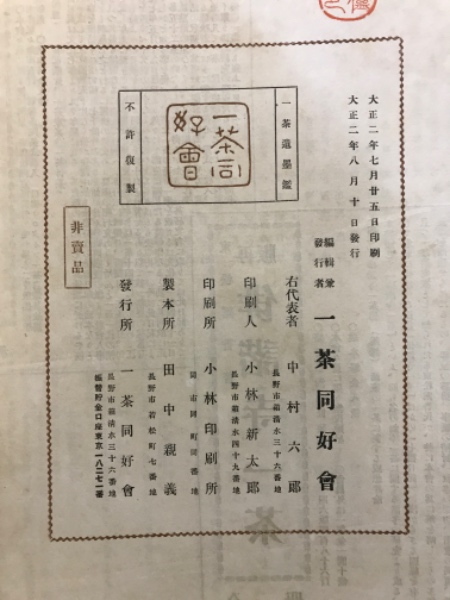 大正二年七月廿五日印刷
大正二年八月十日發行
一茶遺墨鑑
一茶同好會
不許復製
編輯兼發行者 一茶同好會
右代表者 中村六郎
長野市箱清水三十六番地
印刷人 小林新太郎
長野市箱清水四十九番地
印刷所 小林印刷所
同市同町同番地
製本所 田中親義
長野市若松町七番地
發行所 一茶同好會
長野市箱清水三十六番地
振替貯金口座東京一八二七一番
非賣品